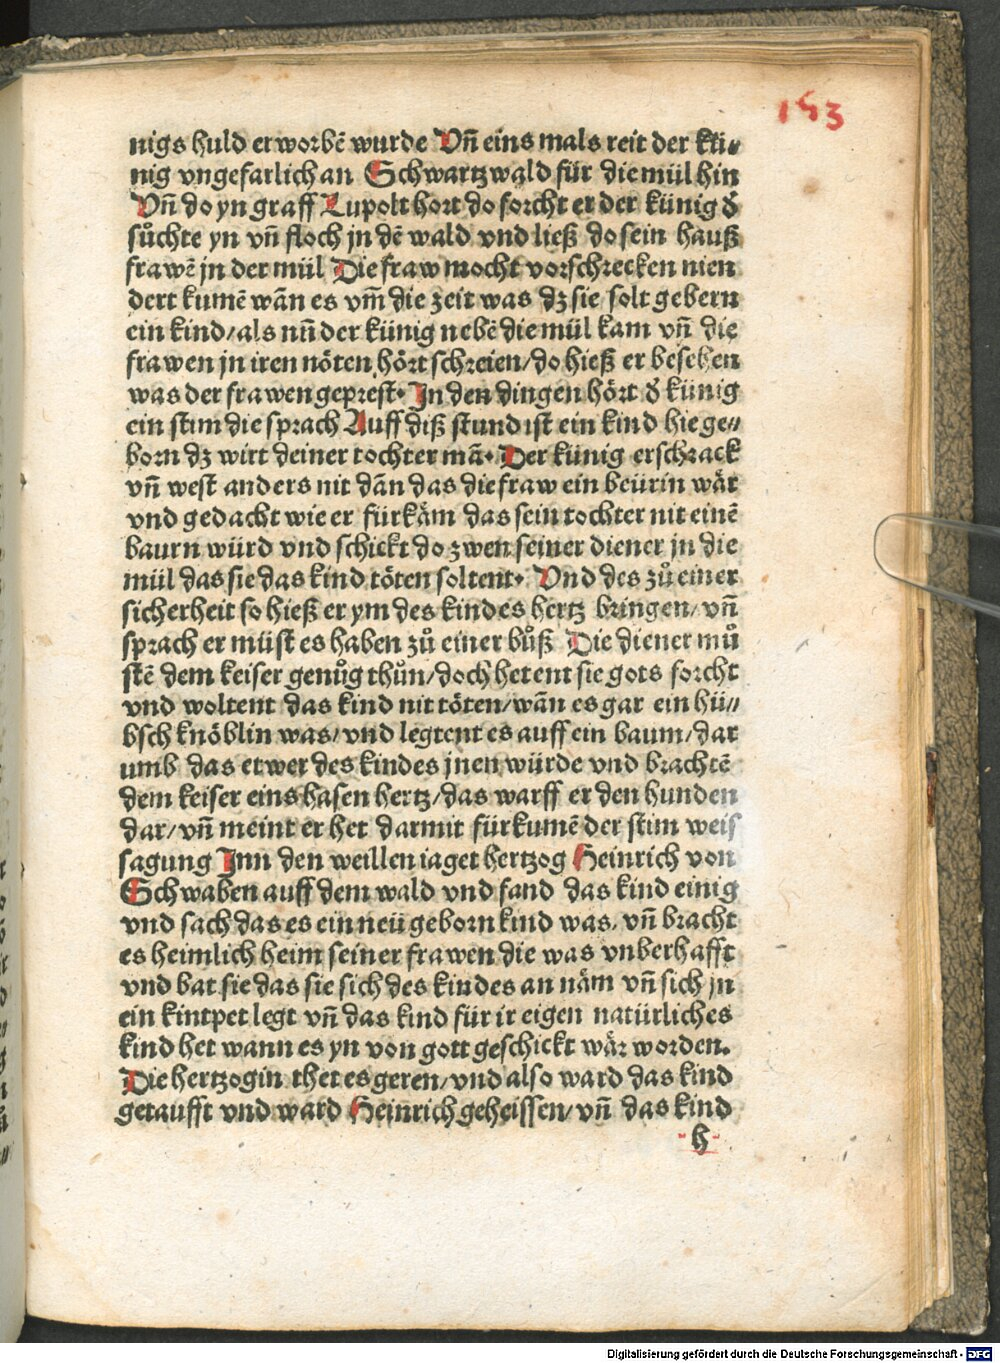 153
nigs huld erworbē wurde Vn̄ eins mals reit der kü⸗
nig vngefarlich an Schwartzwald für die mül hin
Vn̄ do yn graff Lupolt hort do forcht er der künig ď
sůchte yn vn̄ floch jn dē wald vnd ließ do sein hauß
frawē jn der mül Die fraw mocht vorschrecken nien
dert kumē wān es vm̄ die zeit was dz sie solt gebern
ein kind/als nūn der künig nebē die mül kam vn̄ die
frawen jn iren nöten hört schreien/do hieß er besehen
was der frawen geprest. In den dingen hört ď künig
ein stim die sprach Auff diß stund ist ein kind hie ge⸗
born dz wirt deiner tochter mā. Der künig erschrack
vn̄ west anders nit dān das die fraw ein beürin wär
vnd gedacht wie er fürkäm das sein tochter nit einē
baurn würd vnd schickt do zwen seiner diener jn die
mül das sie das kind töten soltent. Vnd des zů einer
sicherheit so hieß er ym des kindes hertz bringen/vn̄
sprach er müst es haben zů einer bůß Die diener mů
stē dem keiser genůg thůn/doch hetent sie gots forcht
vnd woltent das kind nit töten/wān es gar ein hü⸗
bsch knöblin was/vnd legtent es auff ein baum/dar
umb das etwer des kindes jnen würde vnd brachtē
dem keiser eins hasen hertz/das warff er den hunden
dar/vn̄ meint er het darmit fürkumē der stim weis
sagung Inn den weillen iaget hertzog Heinrich von
Schwaben auff dem wald vnd fand das kind einig
vnd sach das es ein neü geborn kind was/vn̄ bracht
es heimlich heim seiner frawen die was vnberhafft
vnd bat sie das sie sich des kindes an näm vn̄ sich jn
ein kintpet legt vn̄ das kind für ir eigen natürliches
kind het wann es yn von gott geschickt wär worden.
Die hertzogin thet es geren/vnd also ward das kind
getaufft vnd ward Heinrich geheissen/vn̄ das kind
h
Digitalisierung gefördert durch die Deutsche Forschungsgemeinschaft - DFG